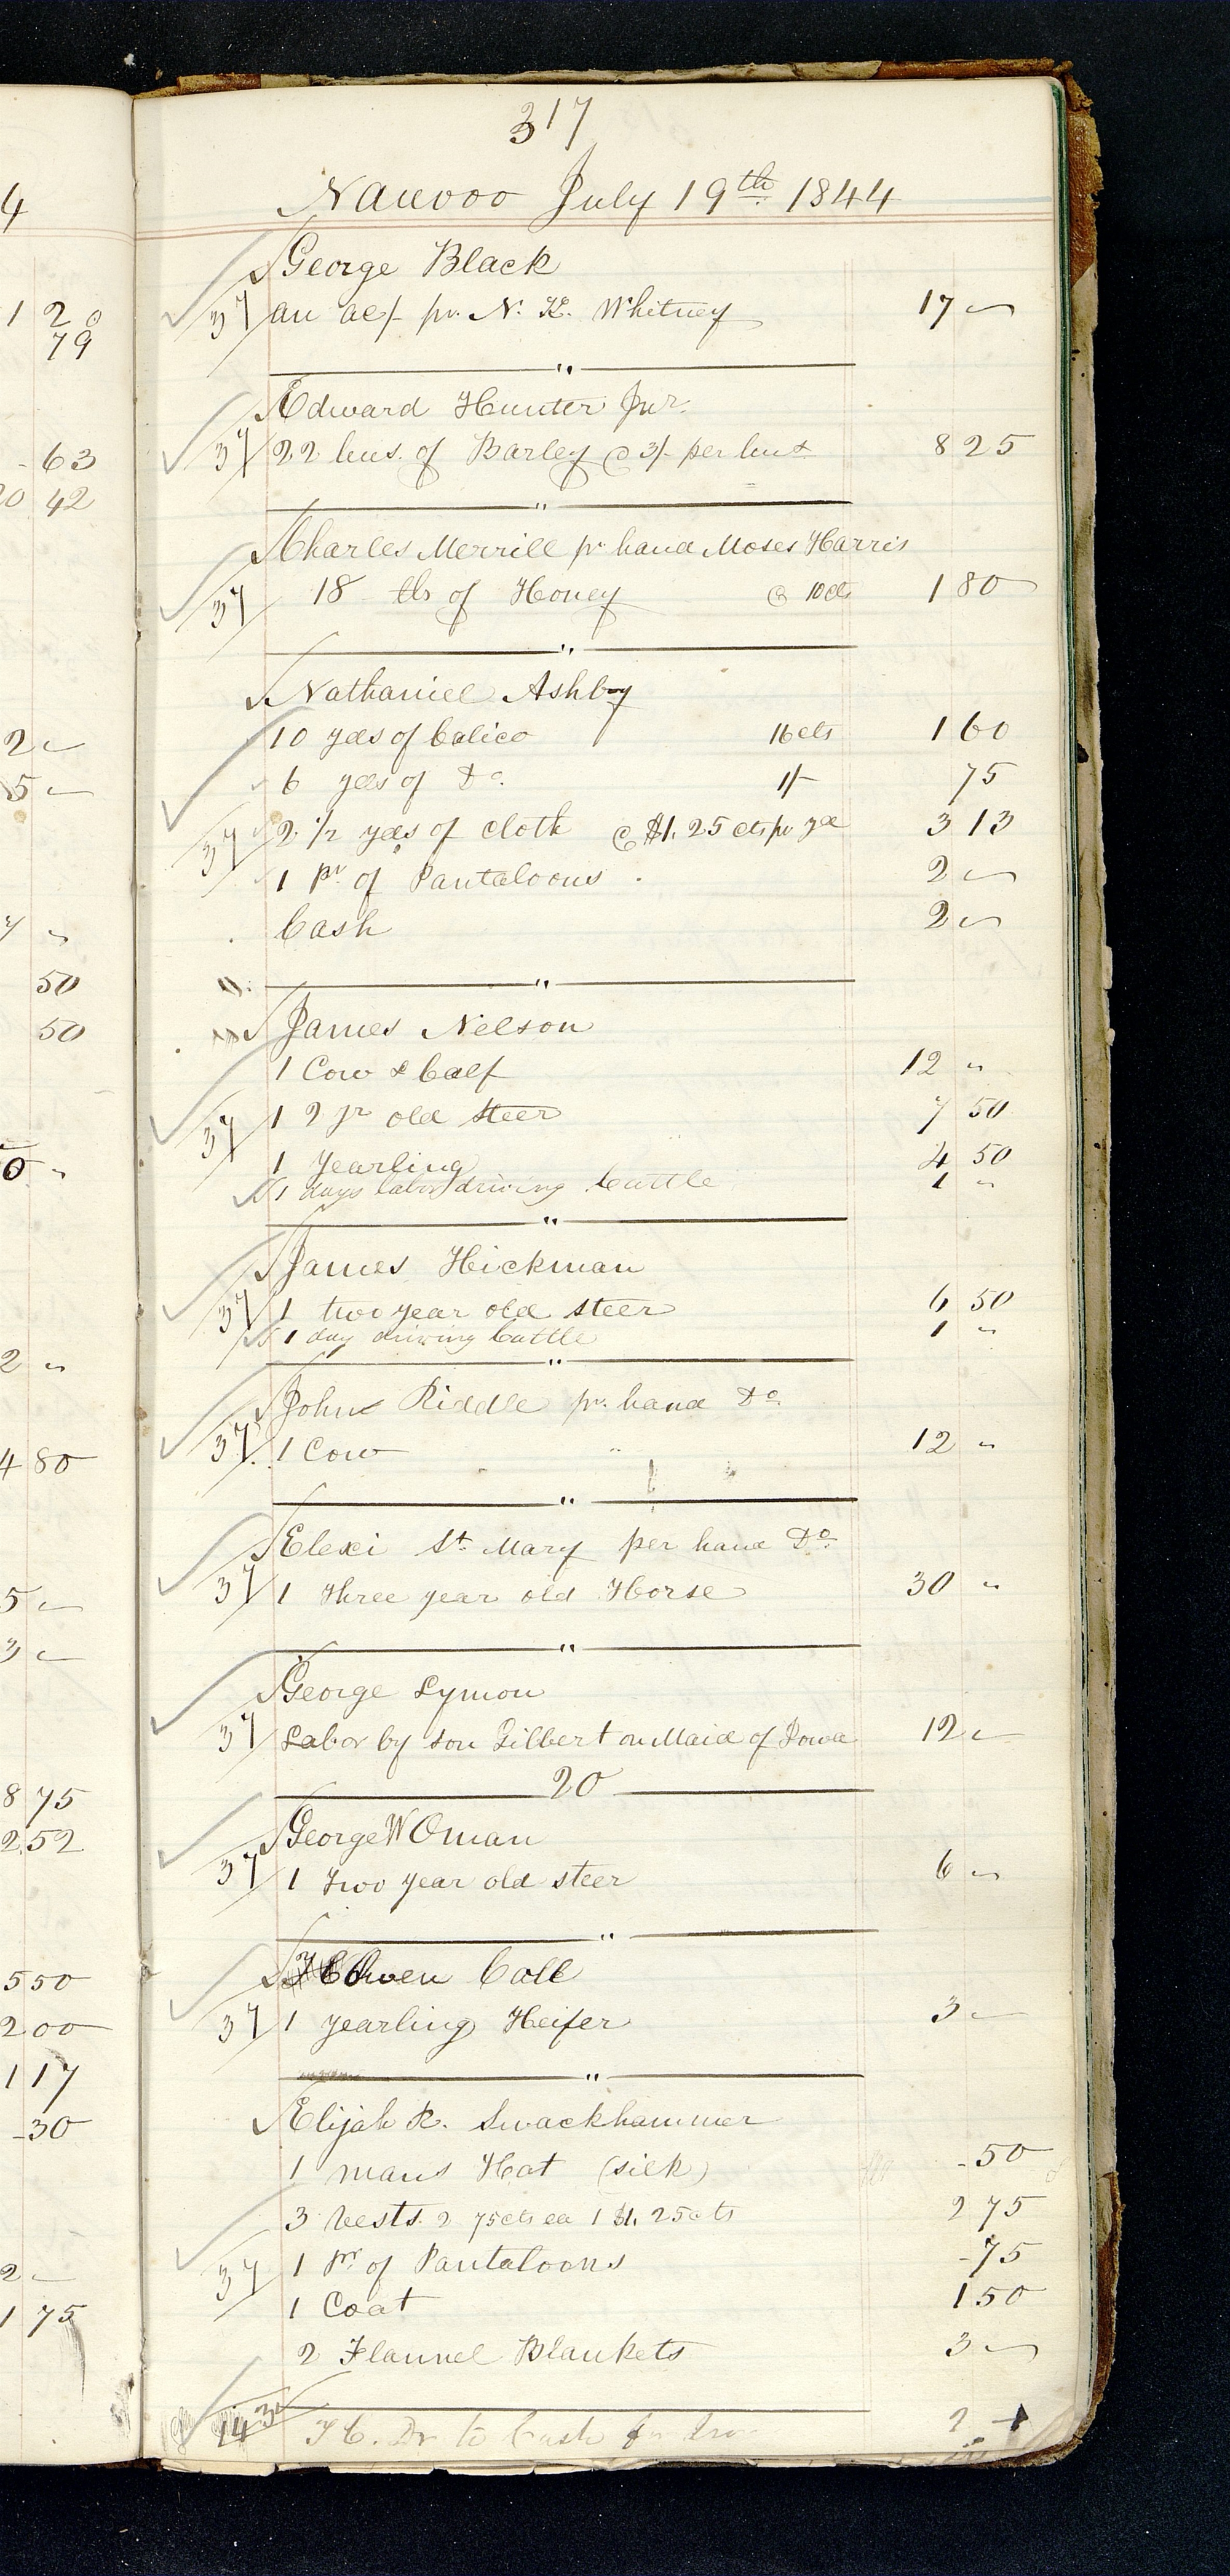 317
Nauvoo July 19th 1844
George Black
37 an ac/- pr. N. K. Whitney 17 "
"
Edward Hunter Jur.
37 22 bus. of Barley @ 3/- per bus 8 25
"
Charles Merrill pr hand Moses Harris
37 18 lbs of Honey @ 10cts 1 80
"
Nathaniel Ashby
10 yds of Calico 16cts 1 60
6 yds of Do. 1/- 75
37 2 1/2 yds of cloth @ $1.25 cts pr yd 3 13
1 pr of Pantaloons 2 "
Cash 2 "
"
James Nelson
1 Cow & Calf 12 "
37 1 2 yr old steer 7 50
1 Yearling 4 50
1 days labor driving Cattle 1 "
"
James Hickman
37 1 two year old steer 6 50
1 day driving Cattle 1 "
"
John Riddle pr. hand Do
37 1 Cow " 12 "
"
Elexi St. Mary per hand Do
37 1 three year old Horse 30 "
"
George Lymon
37 Labor by son Gilbert on Maid of Iowa 12 "
20
George W Oman
37 1 two year old steer 6 "
"
Owen Coll
37 1 yearling Heifer 3 "
"
Elijah R. Swackhammer
1 mans Hat (silk) -50
3 Vests 2 75cts ea 1 $1.25cts 2 75
37 1 pr of Pantaloons -75
1 Coat 1 50
2 Flannel Blankets 3 "
14 T C. Dr to Cash 2
4
1 20
79
-63
20 42
2 "
5 "
7 "
50
50
0 "
2 "
4 80
5 "
3 "
8 75
2 52
5 50
2 00
1 17
-30
2 "
1 75